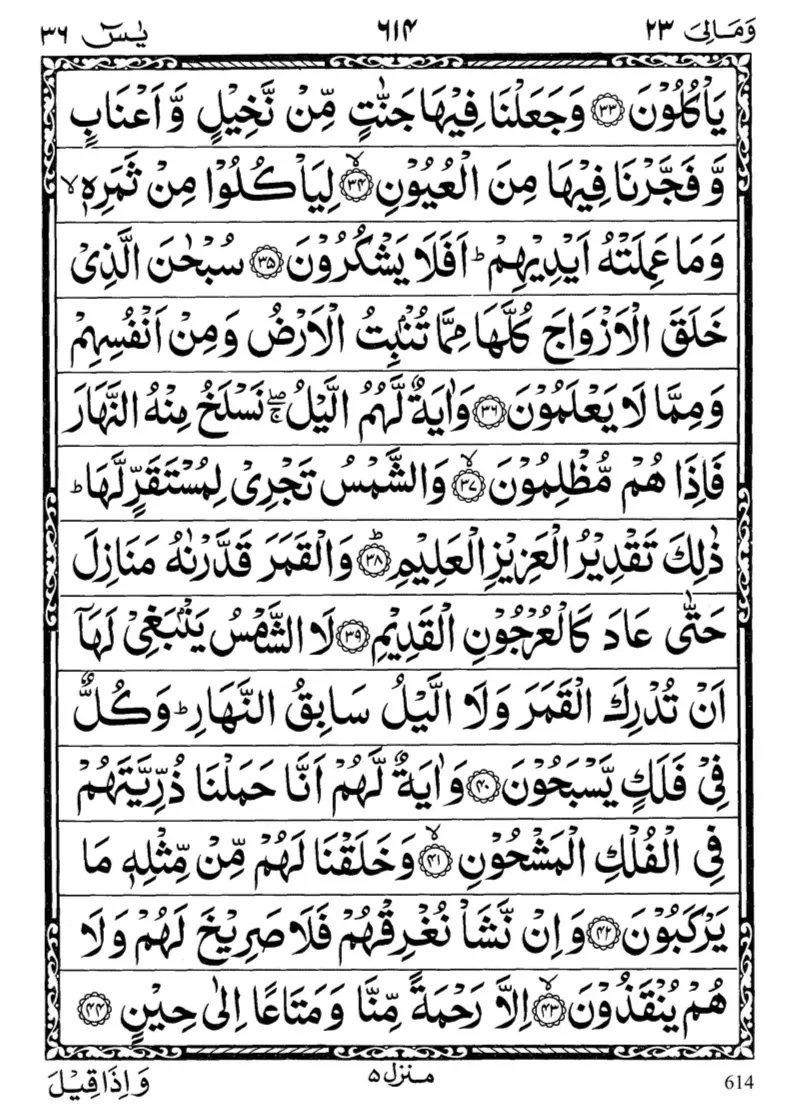 وَمَالِیَ ٢٣ ٦١٤ یٰسٓ ٣٦
یَاْكُلُوْنَ ﴿٣٣﴾ وَجَعَلْنَا فِیْهَا جَنّٰتٍ مِّنْ نَّخِیْلٍ وَّ اَعْنَابٍ
وَّ فَجَّرْنَا فِیْهَا مِنَ الْعُیُوْنِ ۙ﴿٣٤﴾ لِیَاْكُلُوْا مِنْ ثَمَرِهٖ ۙ
وَمَا عَمِلَتْهُ اَیْدِیْهِمْ ؕ اَفَلَا یَشْكُرُوْنَ ﴿٣٥﴾ سُبْحٰنَ الَّذِیْ
خَلَقَ الْاَزْوَاجَ كُلَّهَا مِمَّا تُنْۢبِتُ الْاَرْضُ وَمِنْ اَنْفُسِهِمْ
وَمِمَّا لَا یَعْلَمُوْنَ ﴿٣٦﴾ وَاٰیَةٌ لَّهُمُ الَّیْلُ ۖۚ نَسْلَخُ مِنْهُ النَّهَارَ
فَاِذَا هُمْ مُّظْلِمُوْنَ ۙ﴿٣٧﴾ وَالشَّمْسُ تَجْرِیْ لِمُسْتَقَرٍّ لَّهَا ؕ
ذٰلِكَ تَقْدِیْرُ الْعَزِیْزِ الْعَلِیْمِ ؕ﴿٣٨﴾ وَالْقَمَرَ قَدَّرْنٰهُ مَنَازِلَ
حَتّٰی عَادَ كَالْعُرْجُوْنِ الْقَدِیْمِ ﴿٣٩﴾ لَا الشَّمْسُ یَنْۢبَغِیْ لَهَاۤ
اَنْ تُدْرِكَ الْقَمَرَ وَلَا الَّیْلُ سَابِقُ النَّهَارِ ؕ وَكُلٌّ
فِیْ فَلَكٍ یَّسْبَحُوْنَ ﴿٤٠﴾ وَاٰیَةٌ لَّهُمْ اَنَّا حَمَلْنَا ذُرِّیَّتَهُمْ
فِی الْفُلْكِ الْمَشْحُوْنِ ۙ﴿٤١﴾ وَخَلَقْنَا لَهُمْ مِّنْ مِّثْلِهٖ مَا
یَرْكَبُوْنَ ﴿٤٢﴾ وَاِنْ نَّشَاْ نُغْرِقْهُمْ فَلَا صَرِیْخَ لَهُمْ وَلَا
هُمْ یُنْقَذُوْنَ ۙ﴿٤٣﴾ اِلَّا رَحْمَةً مِّنَّا وَمَتَاعًا اِلٰی حِیْنٍ ﴿٤٤﴾
614 منزل ٥ وَاِذَا قِیْلَ